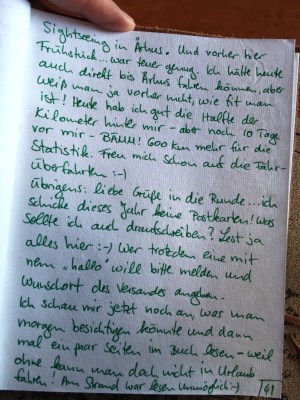 Sightseeing in Århus. Und vorher hier
Frühstück... war teuer genug. Ich hätte heute
auch direkt bis Århus fahren können, aber
weiß man ja vorher nicht, wie fit man
ist! Heute hab ich gut die Hälfte der
Kilometer hinter mir - aber noch 10 Tage
vor mir - BÄM! 600 km mehr für die
Statistik. Freu mich schon auf die Fähr-
überfahrten :-)
Übrigens: liebe Grüße in die Runde... ich
schicke dieses Jahr keine Postkarten! Was
sollte ich auch draufschreiben? Lest ja
alles hier :-) Wer trotzdem eine mit
nem „hallo" will bitte melden und
Wunschort des Versandes angeben.
Ich schau mir jetzt noch an, was man
morgen besichtigen könnte und dann
mal ein paar Seiten im Buch lesen - weil
ohne kann man doch nicht in Urlaub
fahren! Am Strand war lesen unmöglich :-)
41